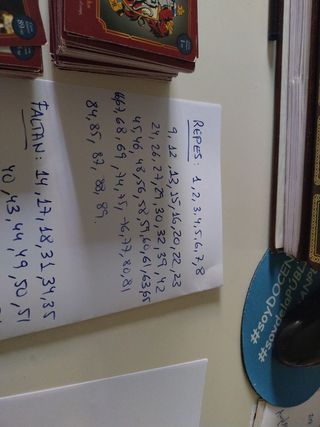 REPES: 1, 2, 3, 4, 5, 6, 7, 8
9, 12, 13, 15, 16, 20, 22, 23
24, 26, 27, 29, 30, 32, 39, 42
45, 46, 48, 56, 58, 59, 60, 61, 63, 65
67, 68, 69, 74, 75, 76, 77, 80, 81
84, 85, 87, 88, 89.
FALTAN: 14, 17, 18, 31, 34, 35
40, 43, 44, 49, 50, 51
#soyDOCEN
#soydelaPÚBL